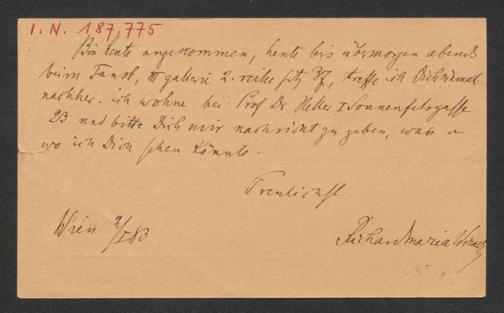 I. N. 187.775
Bin heute angekommen, heute bis übermorgen abends
beim Faust, III gallerie 2. reihe sitz 37, treffe ich Dich einmal
nachher. ich wohne bei Prof Dr Heller I Sonnenfelsgasse
23 und bitte Dich mir nachricht zu geben, wann u
wo ich Dich sehen könnte.
Wien 2/I 83
Richard Maria